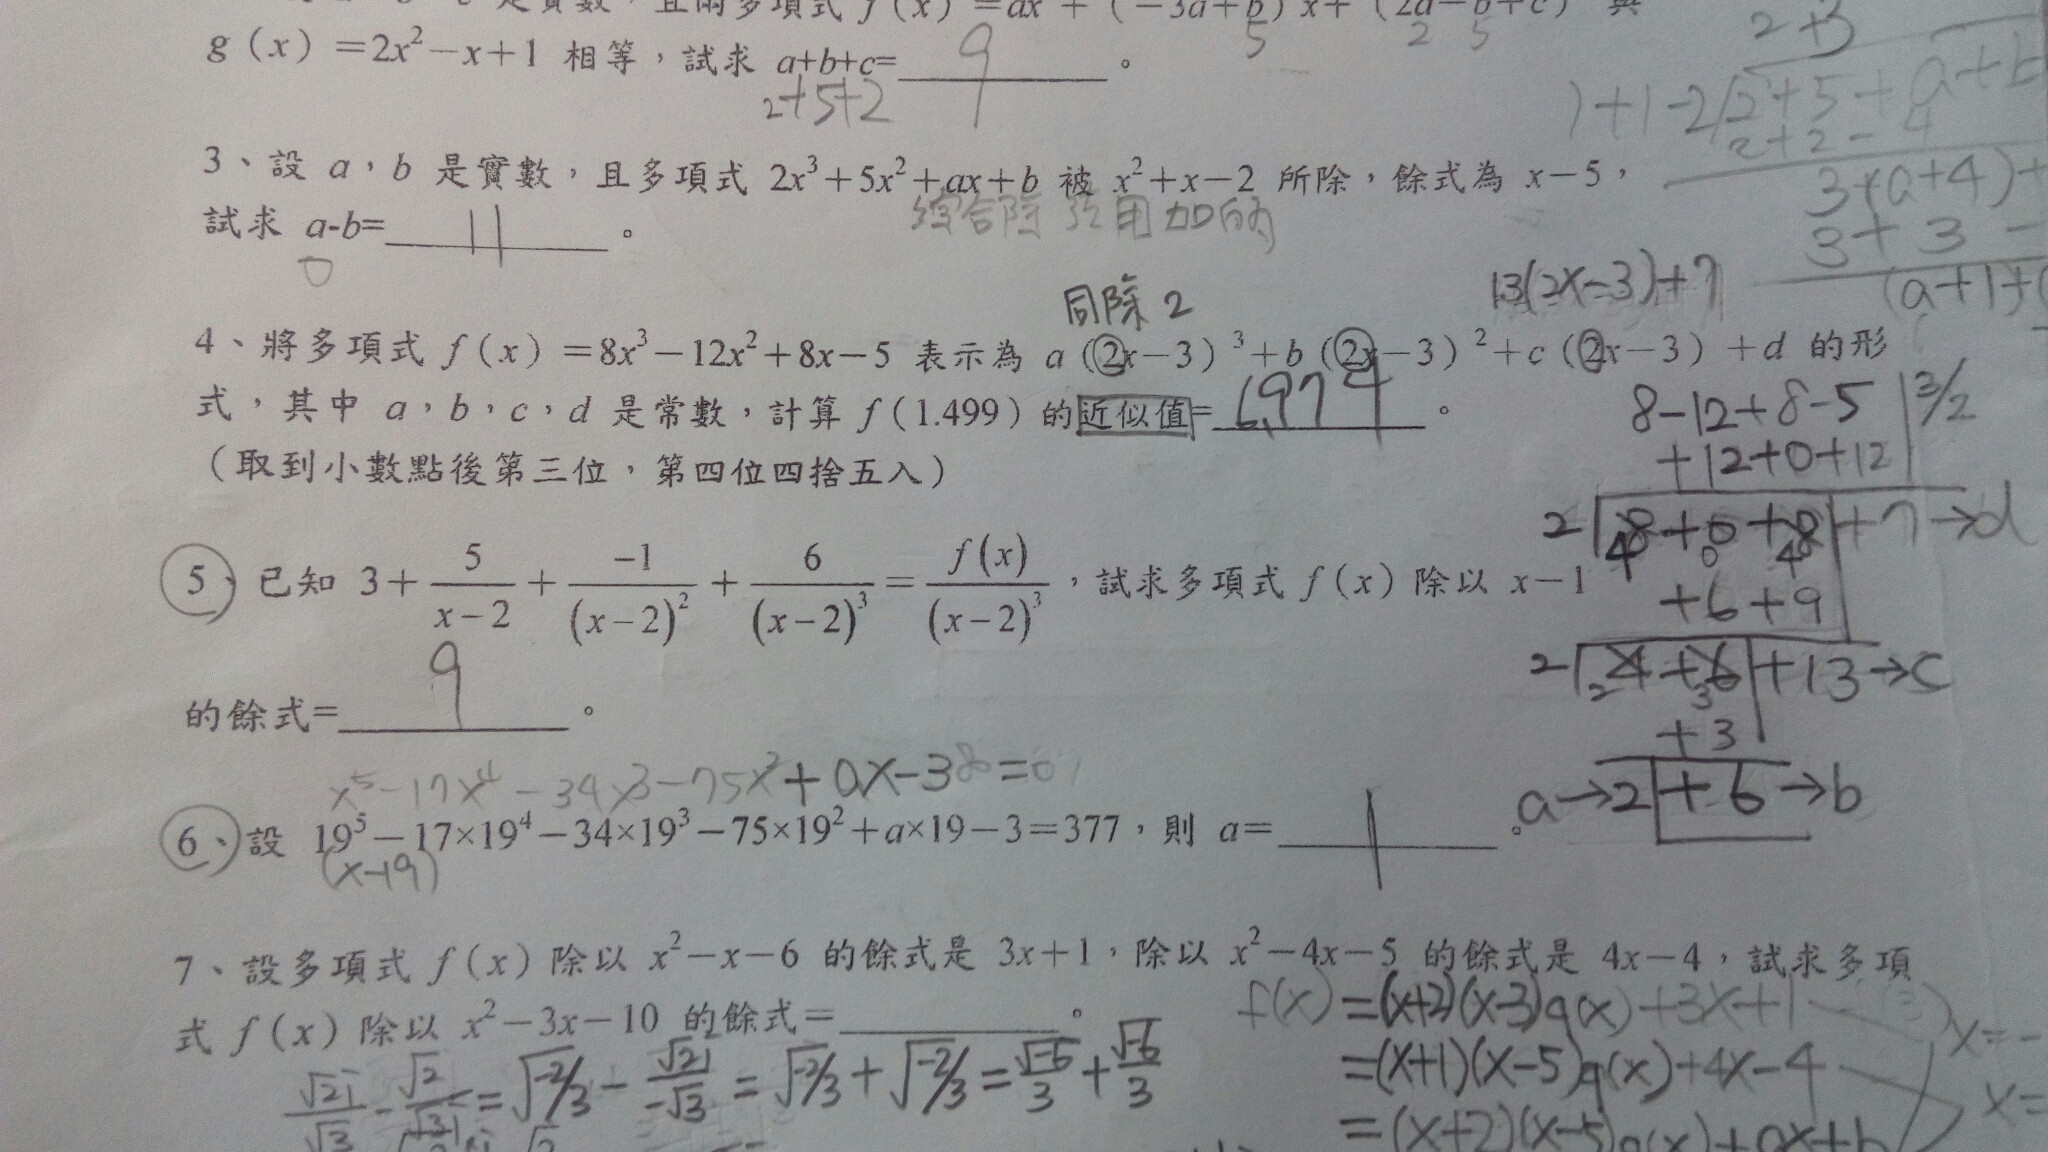 是實數，且兩多項式 f(x)=ax²+(-3a+b)x+(2a-b+c) 與
5 2 5
g(x)=2x²-x+1 相等，試求 a+b+c= 9 。
2+5+2
2+3
1+1-2 2+5+a+b
2+2-4
3+(a+4)+
3+3-
(a+1)+(
3、設 a，b 是實數，且多項式 2x³+5x²+ax+b 被 x²+x-2 所除，餘式為 x-5，
綜合除法用加的
試求 a-b= 11 。
0
同除 2
13(2x-3)+7
4、將多項式 f(x)=8x³-12x²+8x-5 表示為 a(2x-3)³+b(2x-3)²+c(2x-3)+d 的形
式，其中 a，b，c，d 是常數，計算 f(1.499) 的近似值= 6.974 。
（取到小數點後第三位，第四位四捨五入）
8-12+8-5 3/2
+12+0+12
2 8+0+8+7→d
4 0 4
+6+9
2 4+6+13→c
2 3
+3
a→2+6→b
5、已知 3+5/(x-2)+(-1)/(x-2)²+6/(x-2)³=f(x)/(x-2)³，試求多項式 f(x) 除以 x-1
的餘式= 9 。
x⁵-17x⁴-34x³-75x²+ax-38=0
6、設 19⁵-17×19⁴-34×19³-75×19²+a×19-3=377，則 a= 1 。
(x-19)
7、設多項式 f(x) 除以 x²-x-6 的餘式是 3x+1，除以 x²-4x-5 的餘式是 4x-4，試求多項
式 f(x) 除以 x²-3x-10 的餘式= 。
f(x)=(x+2)(x-3)q(x)+3x+1
=(x+1)(x-5)q(x)+4x-4
=(x+2)(x-5)q(x)+ax+b
x=-
x=
=√-2/3-√2i/-√3=√-2/3+√-2/3=√-6/3+√-6/3